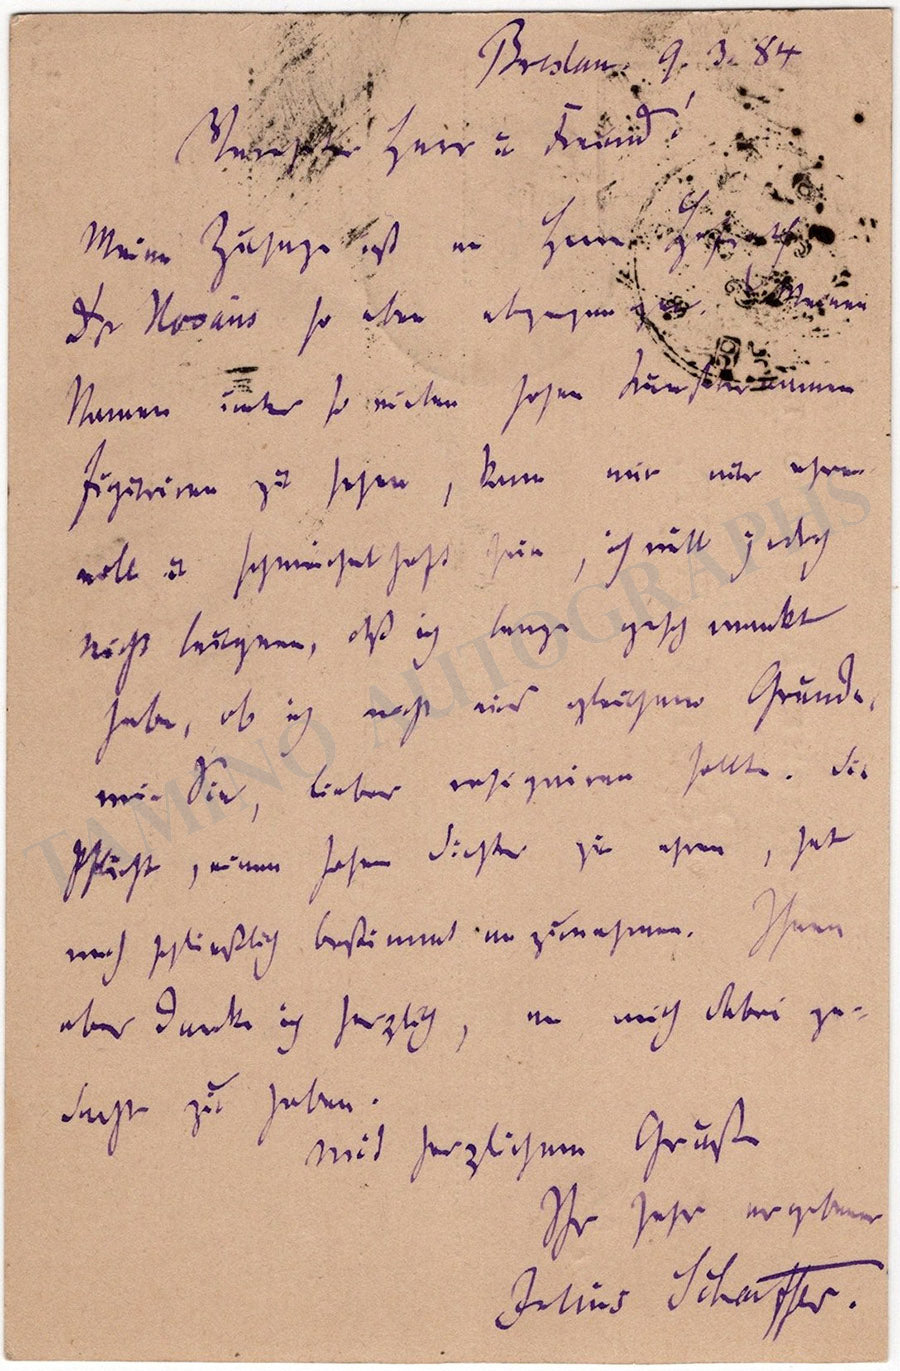 Breslau. 9. 3. 84
Verehrter Herr u Freund!
Meine Zusage ist an Herrn
Dr so eben abgegangen. Meinen
Namen unter so vielen hohen Künstlernamen
figuriren zu sehen, kann mir nur ehren-
voll u schmeichelhaft sein, ich will jedoch
nicht leugnen, daß ich lange geschwankt
habe, ob ich nicht aus gleichem Grunde,
wie Sie, lieber resigniren sollte. Die
Pflicht, einen hohen Dichter zu ehren, hat
mich schließlich bestimmt anzunehmen. Ihnen
aber danke ich herzlich, an mich dabei ge-
dacht zu haben.
Mit herzlichem Gruße
Ihr sehr ergebener
Julius Schaeffer.
TAMINO AUTOGRAPHS